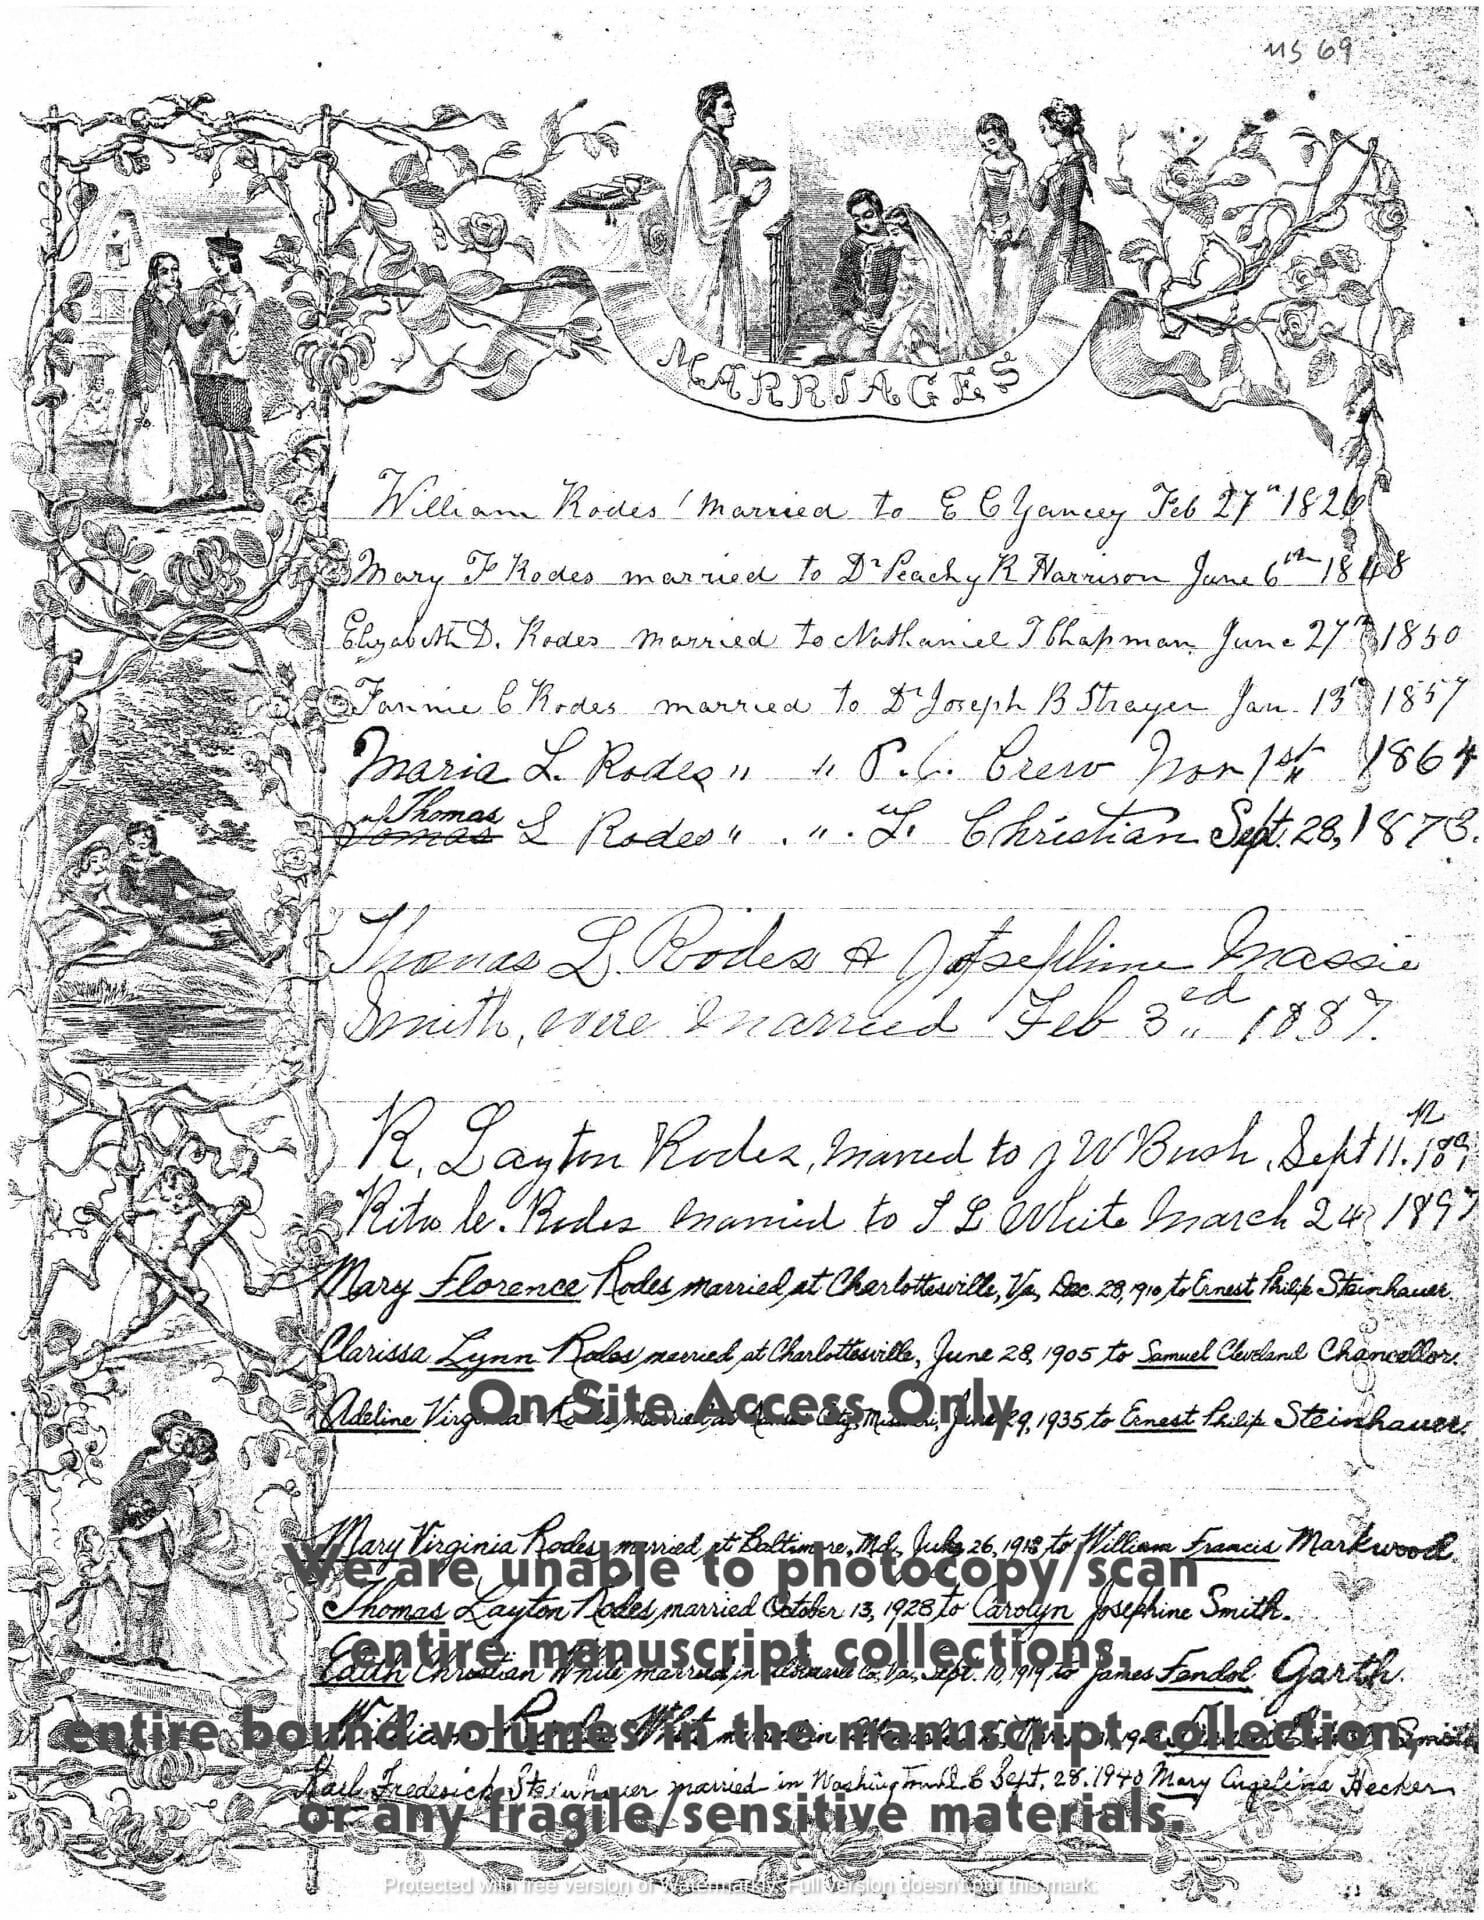 MS 69
MARRIAGES
William Rodes married to E C Yancey Feb 27th 1826
Mary F Rodes married to Dr Peachy R Harrison June 6th 1848
Elizabeth D. Rodes married to Nathaniel T Chapman June 27th 1850
Fannie C Rodes married to Dr Joseph B Strayer Jan. 13th 1857
Maria L. Rodes " " P. C. Crew Nov 1st 1864
Thomas
Tomas L Rodes " " L. Christian Sept. 28, 1873.
Thomas L. Rodes & Josephine Massie
Smith, were married Feb 3rd 1887.
R. Layton Rodes, married to J W Bush, Sept 11th
Rodes married to S L White March 24 189
Mary Florence Rodes married at Charlottesville, Va, Dec. 28, 1910 to Ernest Philip Steinhauer
Clarissa Lynn Rodes married at Charlottesville, June 28, 1905 to Samuel Cleveland Chancellor.
On Site Access Only
Adeline Virginia Rodes married at Kansas City, Missouri, June 29, 1935 to Ernest Philip Steinhauer.
Mary Virginia Rodes married at Baltimore, Md, July 26, 1918 to William Francis Markwood
We are unable to photocopy/scan
Thomas Layton Rodes married October 13, 1928 to Carolyn Josephine Smith.
entire manuscript collections,
Edith Christian White married in Albemarle Co, Va, Sept. 10, 1919 to James Fendol Garth.
entire bound volumes in the manuscript collection,
William Rodes White married in
Karl Frederick Steinhauer married in Washington D C Sept. 28. 1940 Mary Angelina Hecker
or any fragile/sensitive materials.
Protected with free version of Watermarkly. Full version doesn't put this mark.